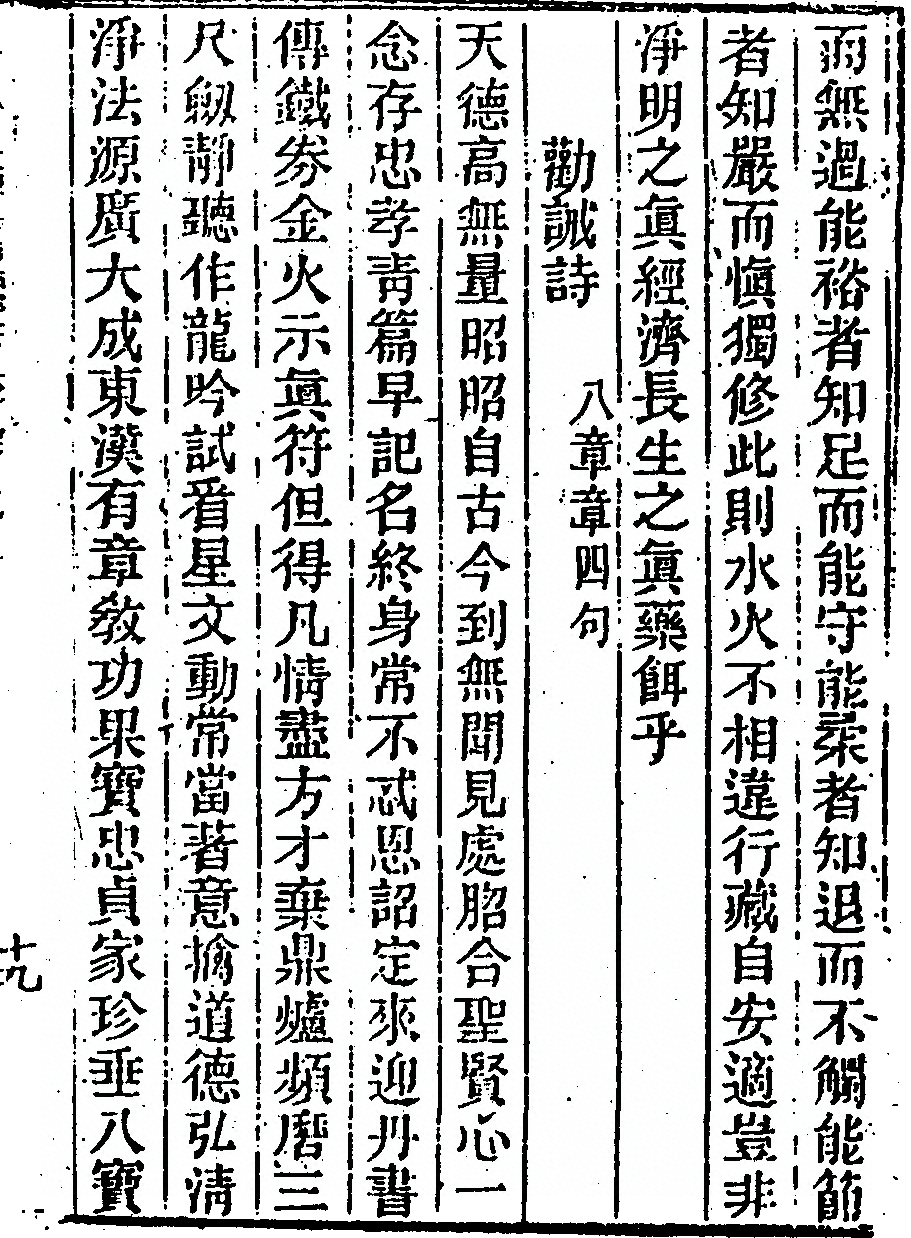 而無過能裕者知足而能守能柔者知退而不觸能節
者知嚴而愼獨修此則水火不相違行藏自安適豈非
淨明之眞經濟長生之眞藥餌乎
勸誡詩 八章章四句
天德高無量昭昭自古今到無聞見處脗合聖賢心一
念存忠孝靑篇早記名終身常不忒恩詔定來迎丹書
傳鐵券金火示眞符但得凡情盡方才棄鼎爐頻磨三
尺劒靜聽作龍吟試看星文動常當著意擒道德弘淸
淨法源廣大成東漢有章敎功果寶忠貞家珍垂八寶
十九